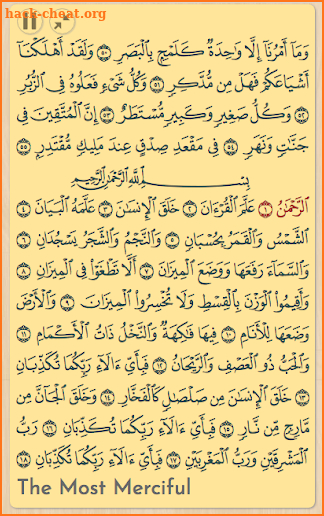 hack-cheat.org
وَمَآ أَمْرُنَآ إِلَّا وَٰحِدَةٌ كَلَمْحٍۭ بِٱلْبَصَرِ ٥٠ وَلَقَدْ أَهْلَكْنَآ
أَشْيَاعَكُمْ فَهَلْ مِن مُّدَّكِرٍ ٥١ وَكُلُّ شَىْءٍ فَعَلُوهُ فِى ٱلزُّبُرِ
٥٢ وَكُلُّ صَغِيرٍ وَكَبِيرٍ مُّسْتَطَرٌ ٥٣ إِنَّ ٱلْمُتَّقِينَ فِى
جَنَّٰتٍ وَنَهَرٍ ٥٤ فِى مَقْعَدِ صِدْقٍ عِندَ مَلِيكٍ مُّقْتَدِرٍۭ ٥٥
بِسْمِ ٱللَّهِ ٱلرَّحْمَٰنِ ٱلرَّحِيمِ
ٱلرَّحْمَٰنُ ١ عَلَّمَ ٱلْقُرْءَانَ ٢ خَلَقَ ٱلْإِنسَٰنَ ٣ عَلَّمَهُ ٱلْبَيَانَ ٤
ٱلشَّمْسُ وَٱلْقَمَرُ بِحُسْبَانٍ ٥ وَٱلنَّجْمُ وَٱلشَّجَرُ يَسْجُدَانِ ٦
وَٱلسَّمَآءَ رَفَعَهَا وَوَضَعَ ٱلْمِيزَانَ ٧ أَلَّا تَطْغَوْا۟ فِى ٱلْمِيزَانِ ٨
وَأَقِيمُوا۟ ٱلْوَزْنَ بِٱلْقِسْطِ وَلَا تُخْسِرُوا۟ ٱلْمِيزَانَ ٩ وَٱلْأَرْضَ
وَضَعَهَا لِلْأَنَامِ ١٠ فِيهَا فَٰكِهَةٌ وَٱلنَّخْلُ ذَاتُ ٱلْأَكْمَامِ ١١
وَٱلْحَبُّ ذُو ٱلْعَصْفِ وَٱلرَّيْحَانُ ١٢ فَبِأَىِّ ءَالَآءِ رَبِّكُمَا تُكَذِّبَانِ
١٣ خَلَقَ ٱلْإِنسَٰنَ مِن صَلْصَٰلٍ كَٱلْفَخَّارِ ١٤ وَخَلَقَ ٱلْجَآنَّ مِن
مَّارِجٍ مِّن نَّارٍ ١٥ فَبِأَىِّ ءَالَآءِ رَبِّكُمَا تُكَذِّبَانِ ١٦ رَبُّ
ٱلْمَشْرِقَيْنِ وَرَبُّ ٱلْمَغْرِبَيْنِ ١٧ فَبِأَىِّ ءَالَآءِ رَبِّكُمَا تُكَذِّبَانِ ١٨
The Most Merciful